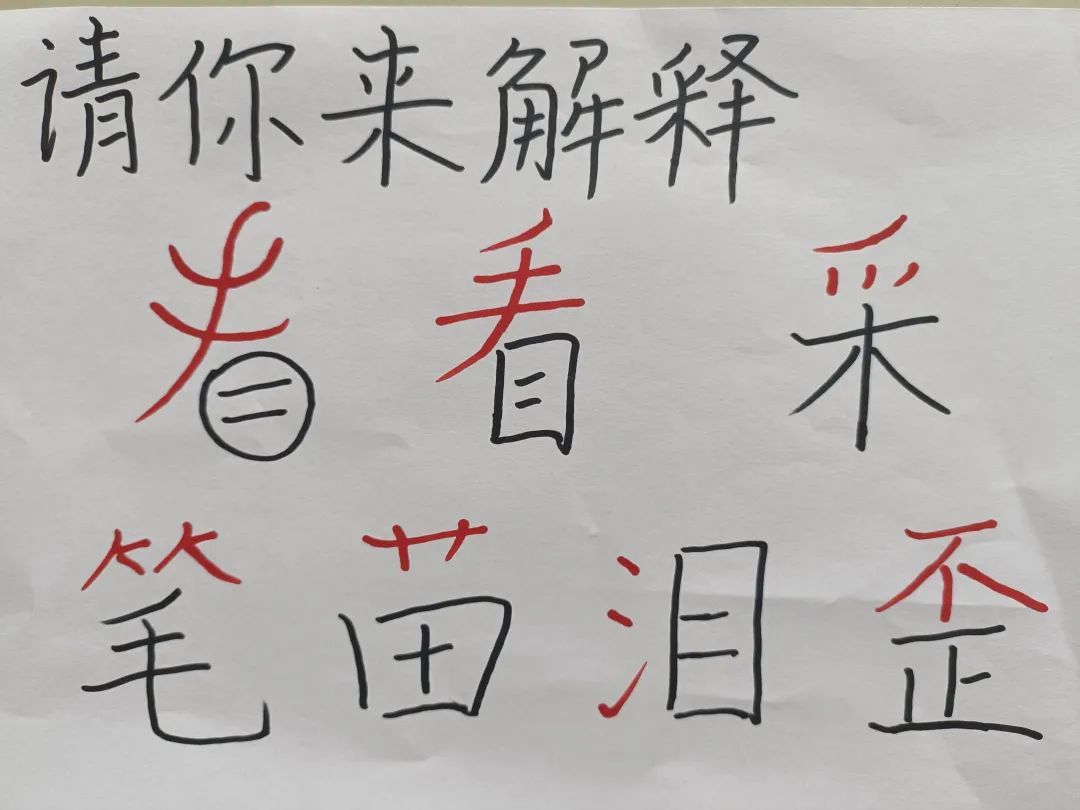 请你来解释
看 看 采
笔 苗 泪 歪